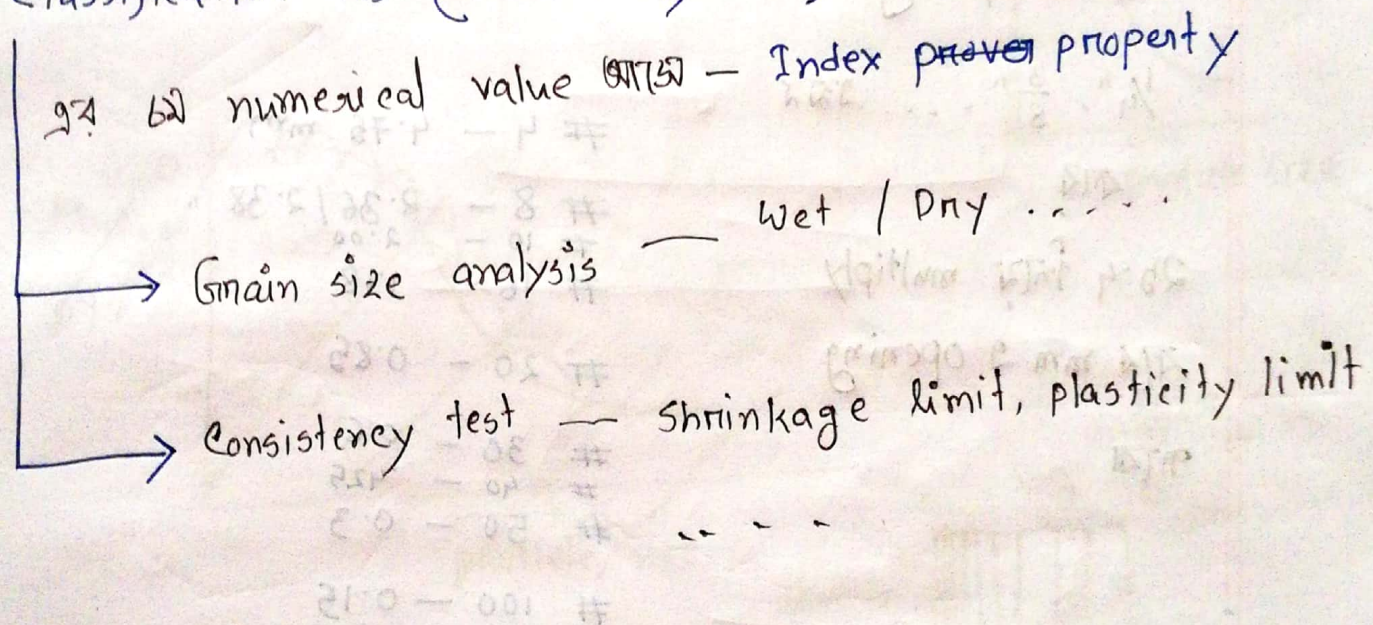 এর যে numerical value আসে – Index property
→ Grain size analysis — Wet / Dry .....
→ Consistency test — Shrinkage limit, plasticity limit
....